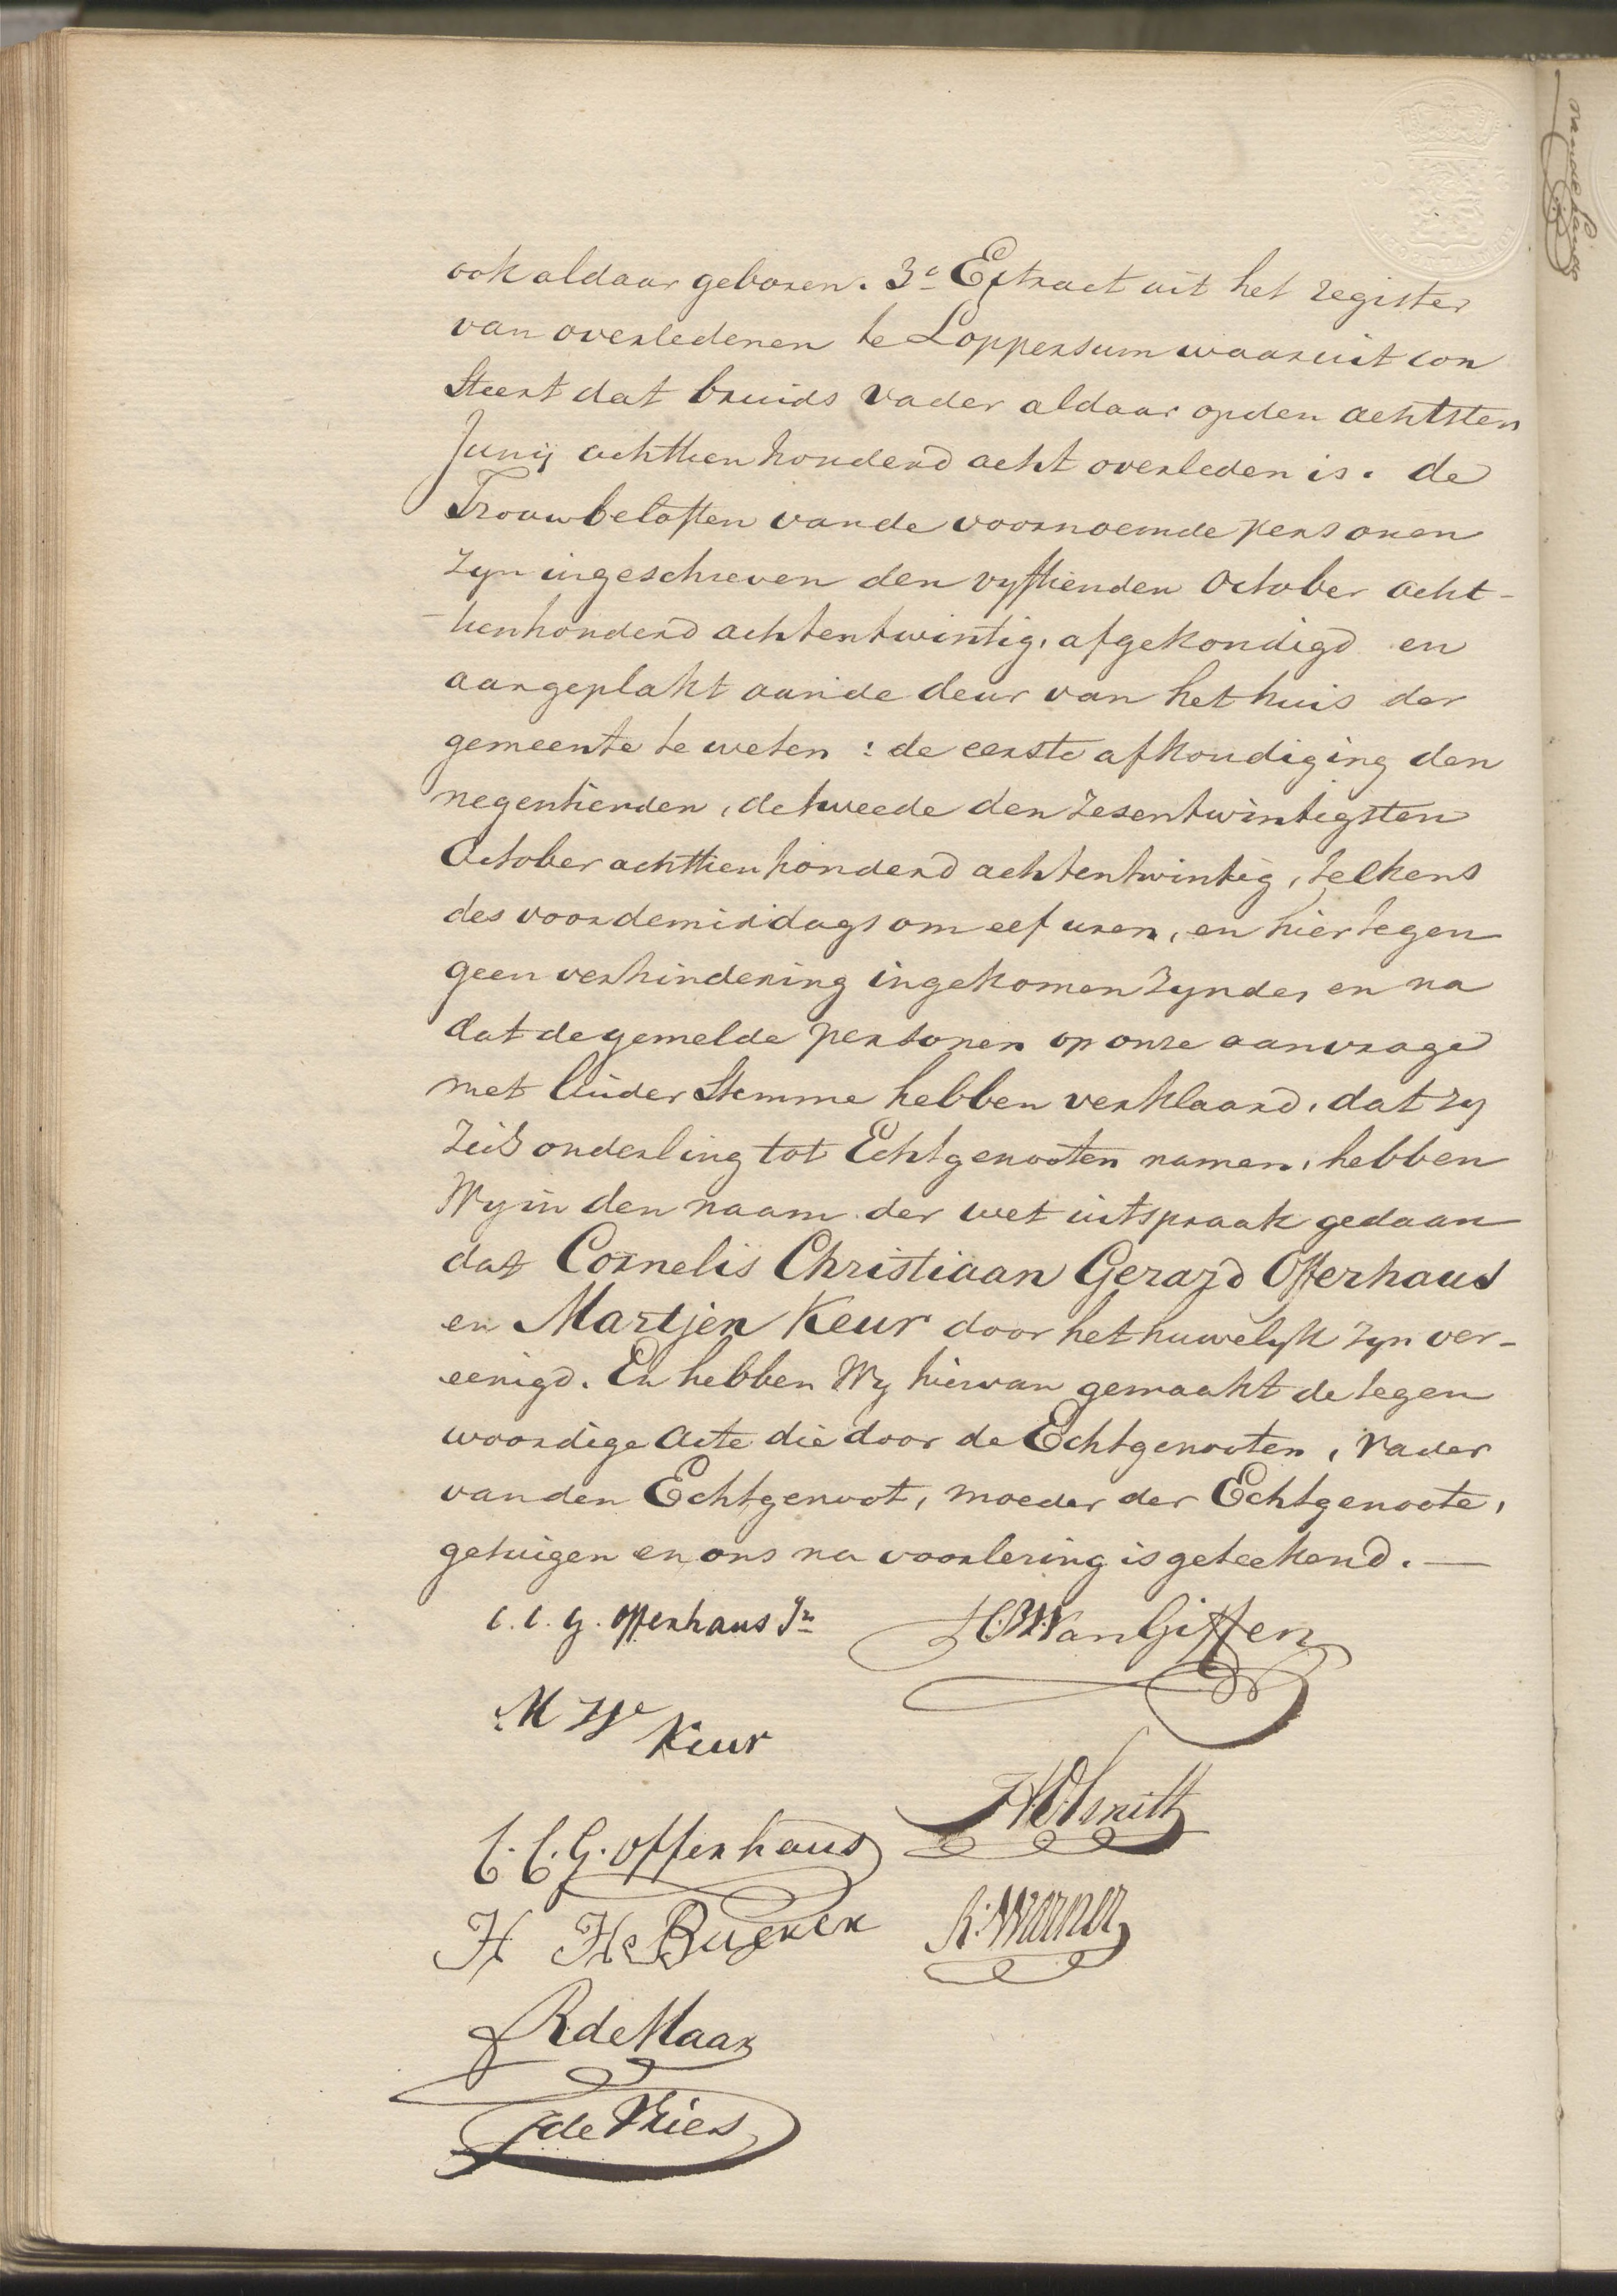 ook aldaar geboren. 3e Extract uit het register
van overledenen te Loppersum waaruit con
steert dat bruids vader aldaar op den achtsten
Junij achttienhonderd acht overleden is. de
Trouwbeloften van de voornoemde personen
zyn ingeschreven den vyftienden October acht-
-tienhonderd achtentwintig, afgekondigd en
aangeplakt aan de deur van het huis der
gemeente te weten: de eerste afkondiging den
negentienden, de tweede den zesentwintigsten
October achttienhonderd achtentwintig, telkens
des voordemiddags om elf uren, en hiertegen
geen verhindering ingekomen zynde, en na
dat de gemelde personen op onze aanvrage
met luider stemme hebben verklaard, dat zy
zich onderling tot Echtgenooten namen, hebben
Wy in den naam der wet uitspraak gedaan
dat Cornelis Christiaan Gerard Offerhaus
en Martjen Keur door het huwelyk zyn ver-
eenigd. En hebben Wy hiervan gemaakt de tegen
woordige acte die door de Echtgenooten, vader
van den Echtgenoot, moeder der Echtgenoote,
getuigen en ons na voorlezing is geteekend. —
C. C. G. Offerhaus Jr
van Giffen
M
Keur
Smith
C. C. G. Offerhaus
H H Bueren
R. Warner
R de Maar
J de Vries